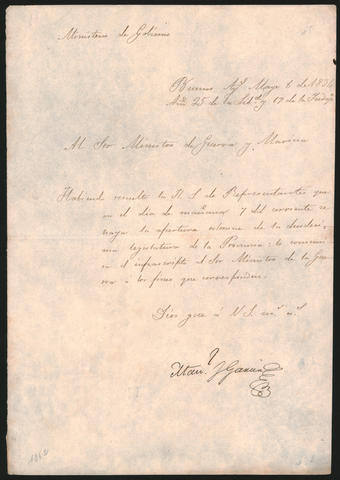 Ministerio de Gobierno
Buenos Ays Mayo 6 de 1834
Año 25 de la Libd y 19 de la Indepa
Al Sor Ministro de Guerra y Marina
Habiendo resuelto la H. S. de Representantes que
en el dia de mañana 7 del corriente se
haga la apertura solemne de la
legislatura de la Provincia: lo comunica
el infrascripto al Sor Ministro de la Gue
rra a los fines que corresponden.
Dios gue a V.S. ms as
Man. J Garcia
1862